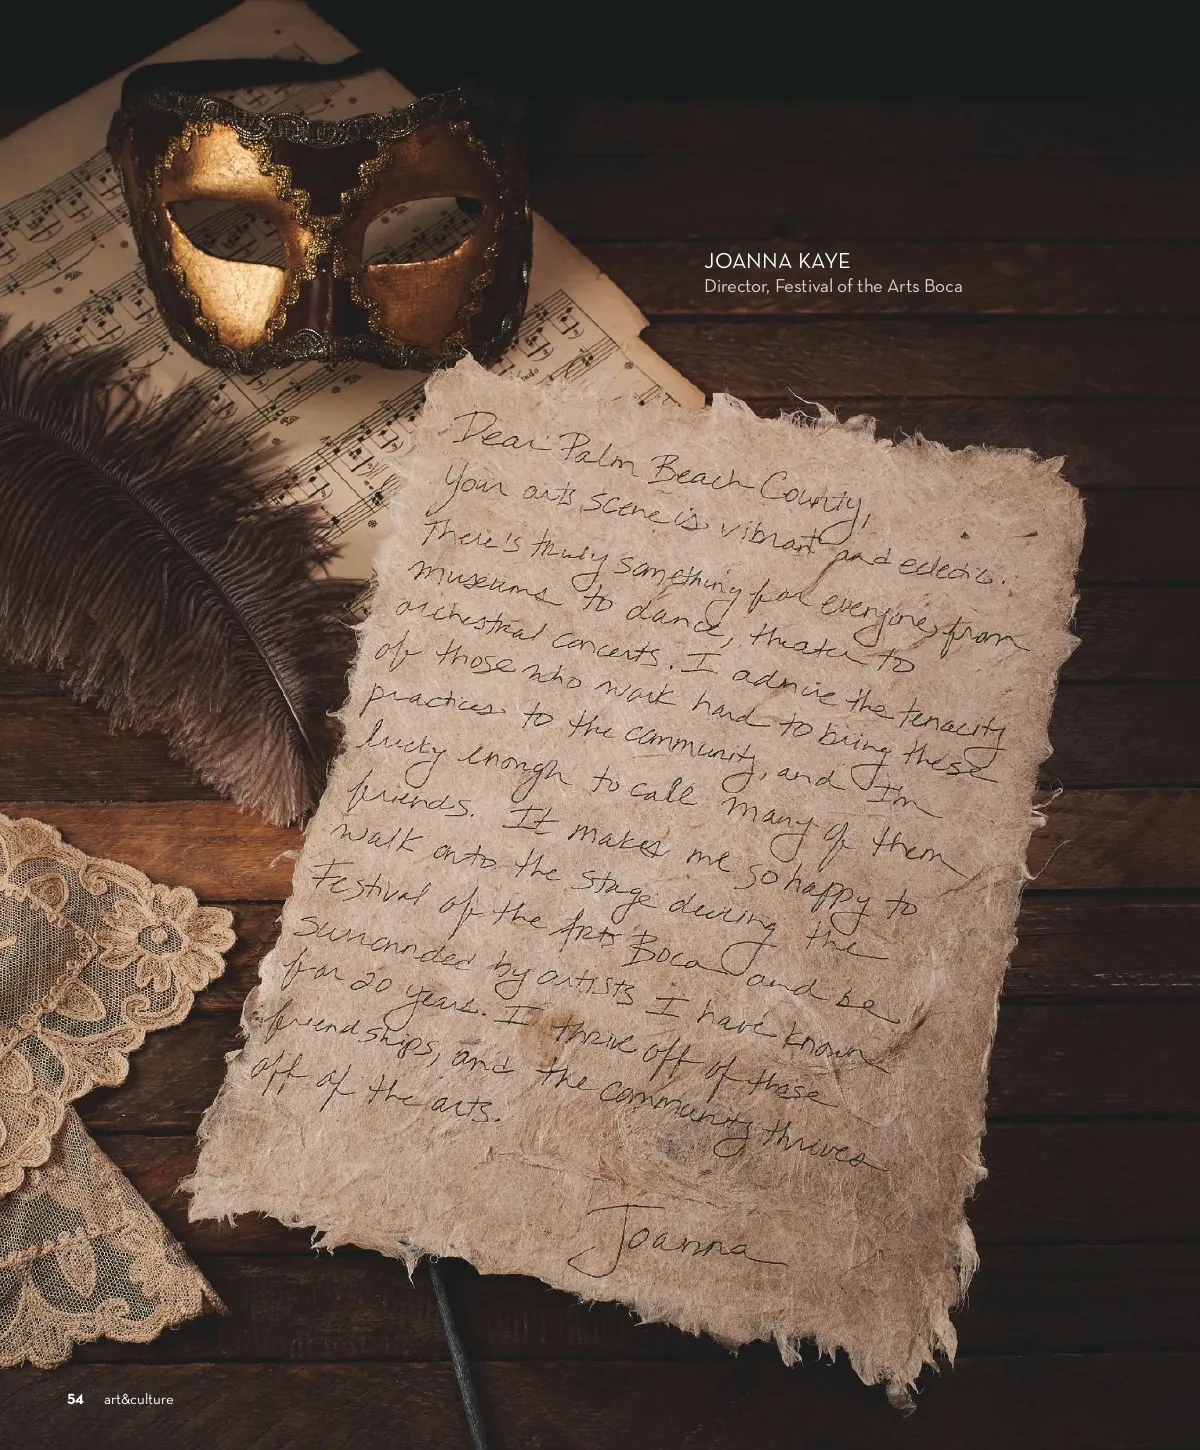 JOANNA KAYE
Director, Festival of the Arts Boca
Dear Palm Beach County,
Your arts scene is vibrant and eclectic.
There is truly something for everyone, from
museums to dance, theater to
orchestral concerts. I admire the tenacity
of those who work hard to bring these
practices to the community, and I'm
lucky enough to call many of them
friends. It makes me so happy to
walk onto the stage during the
Festival of the Arts Boca and be
surrounded by artists I have known
for 20 years. I thrive off of these
friendships, and the community thrives
off of the arts.
Joanna
54 art&culture